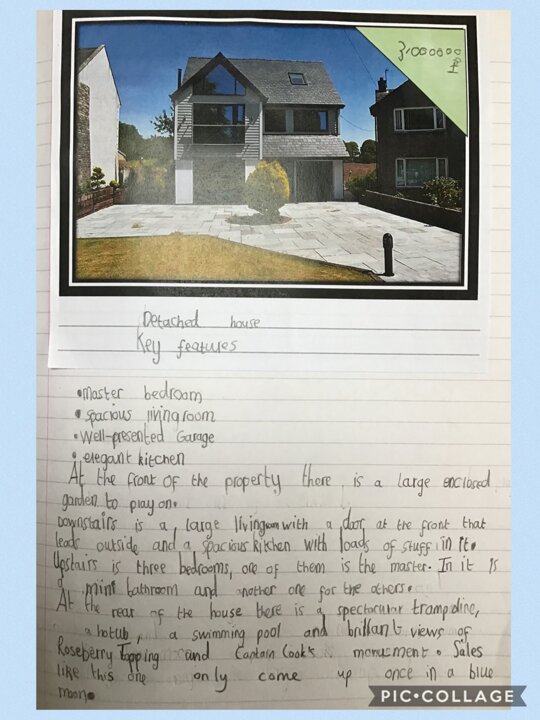 3,000000
£
Detached house
Key features
•master bedroom
• spacious livingroom
• Well-presented Garage
• elegant kitchen
At the front of the property there is a large enclosed
garden to play on.
Downstairs is a large livingroom with a door at the front that
leads outside and a spacious kitchen with loads of stuff in it.
Upstairs is three bedrooms, one of them is the master. In it is
a mini bathroom and another one for the others.
At the rear of the house there is a spectacular trampoline,
a hotub, a swimming pool and brilliant views of
Roseberry Topping and Captain Cook's monument. Sales
like this one only come up once in a blue
moon.
PIC•COLLAGE